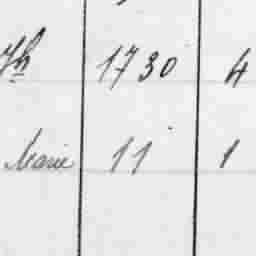 Jh 1730 4
Marie 11 1